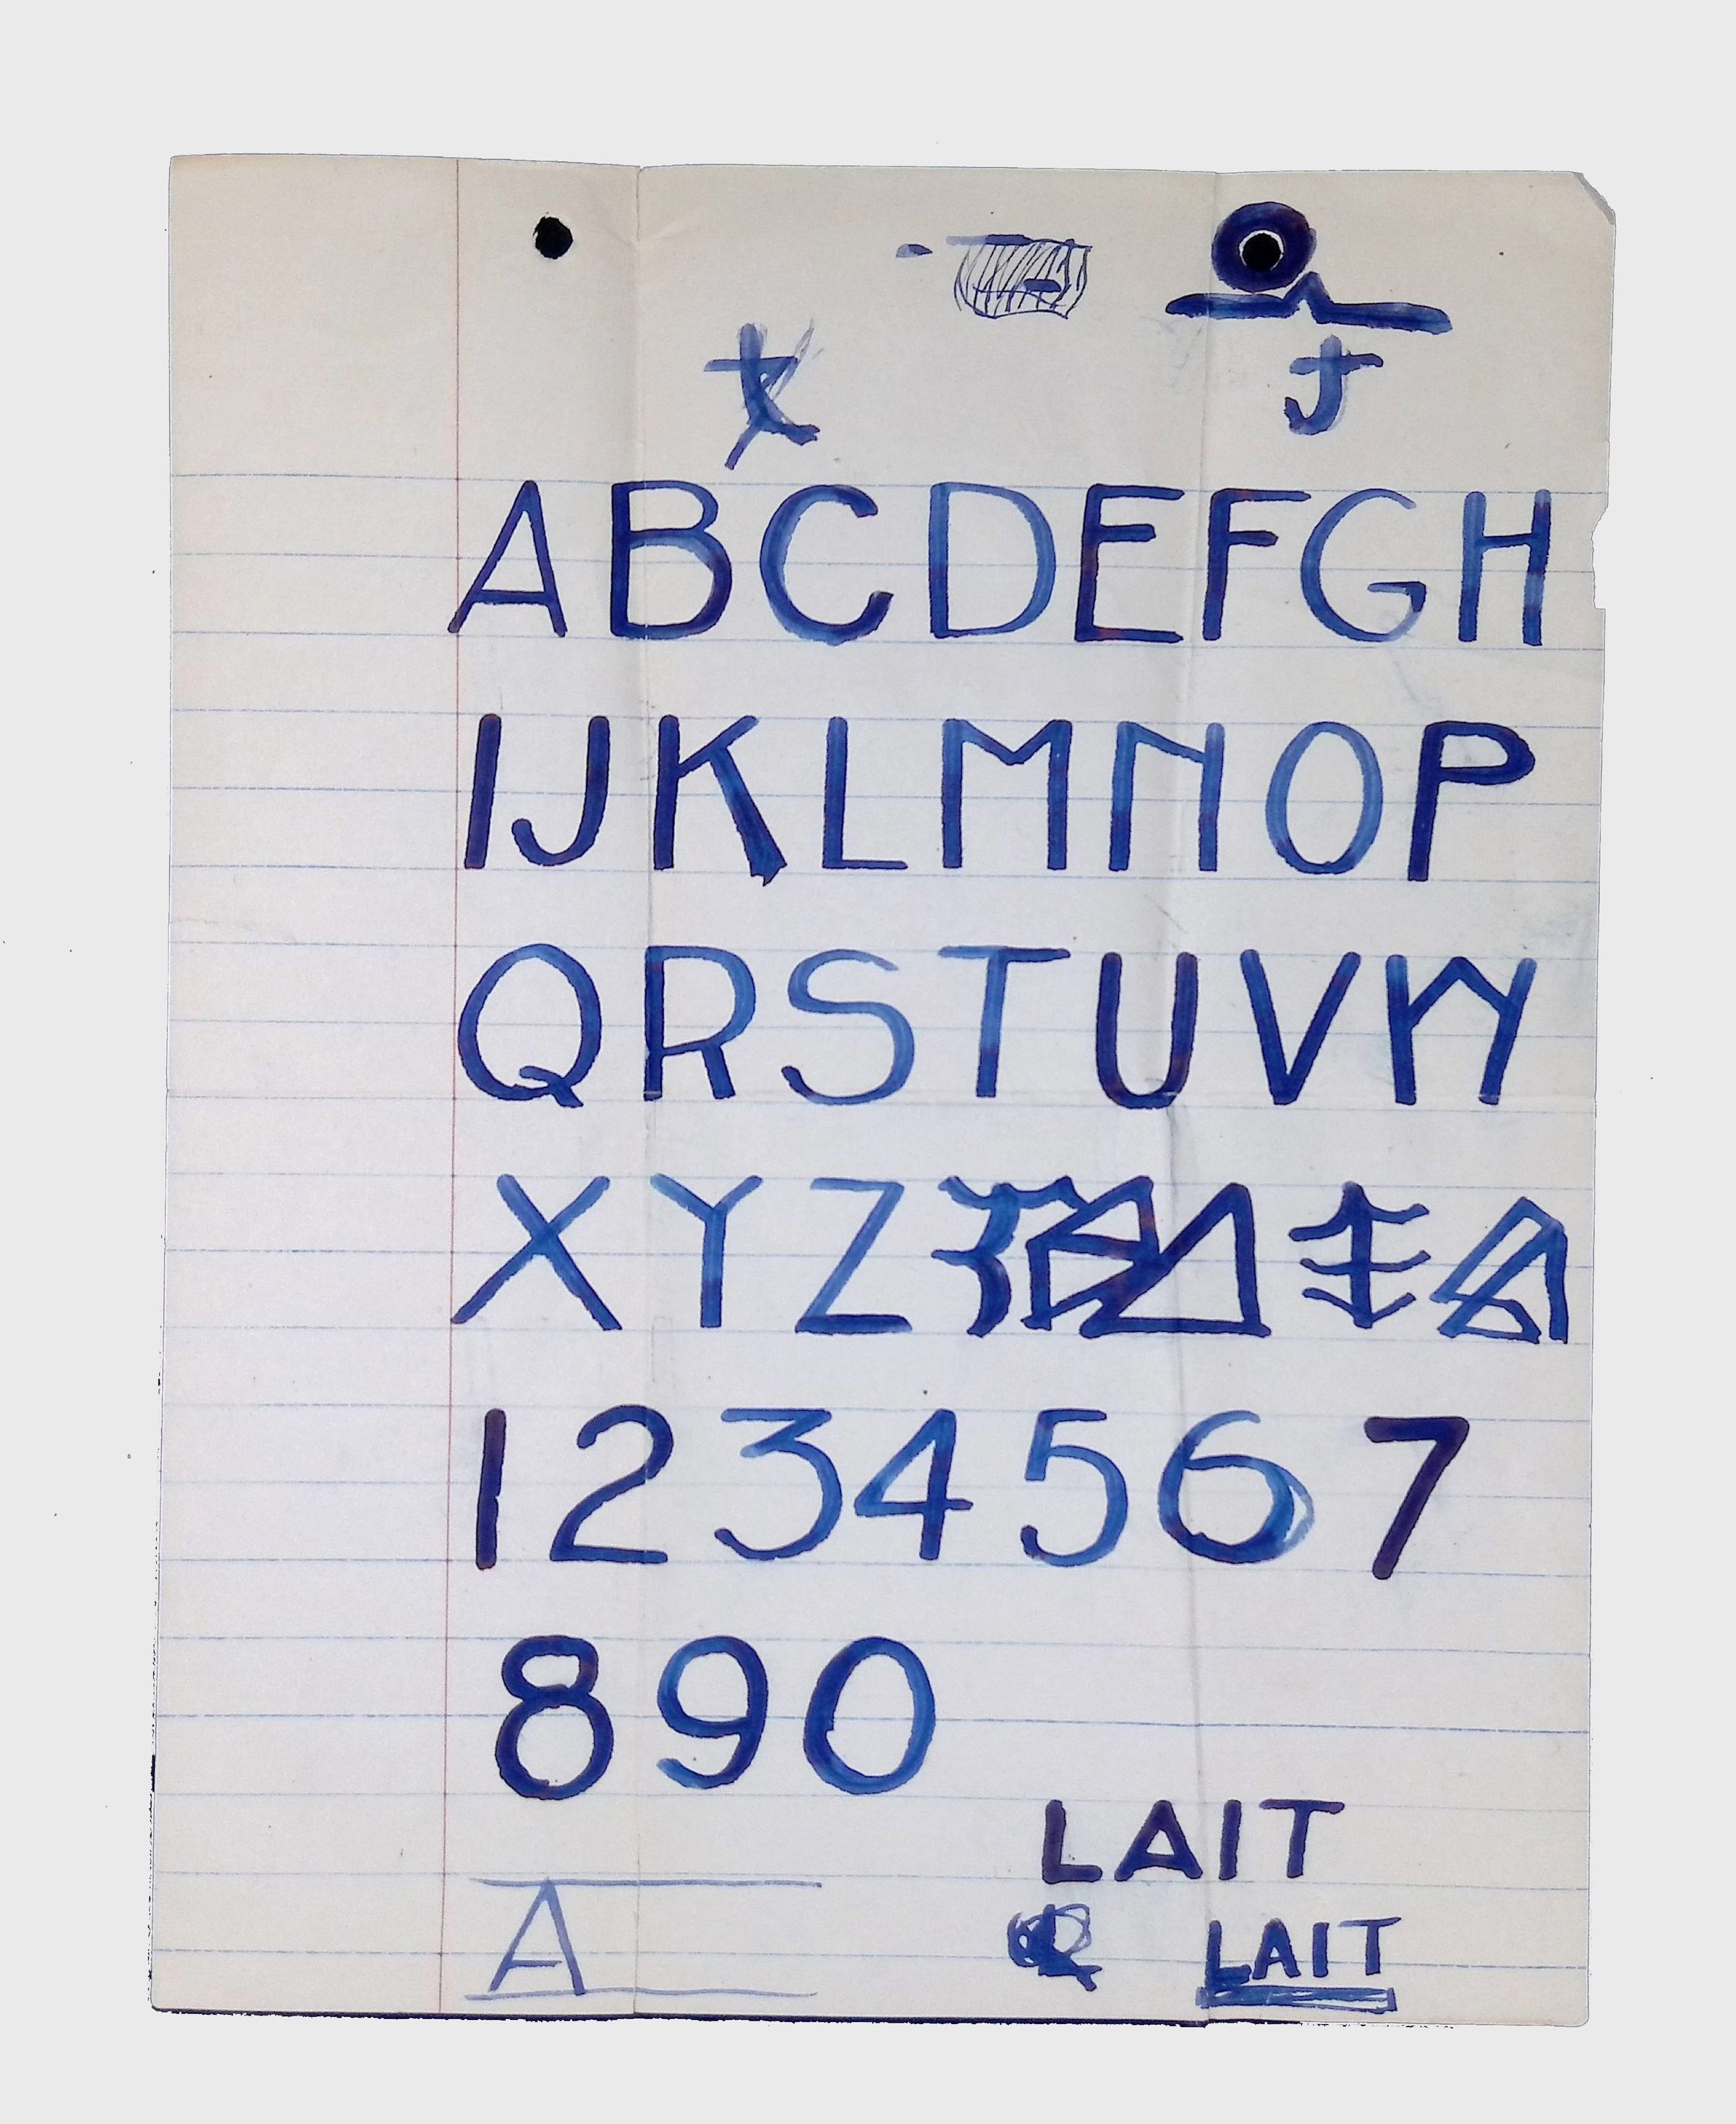 J
ABCDEFGH
IJKLMNOP
QRSTUVW
XYZ
1234567
890
LAIT
A LAIT